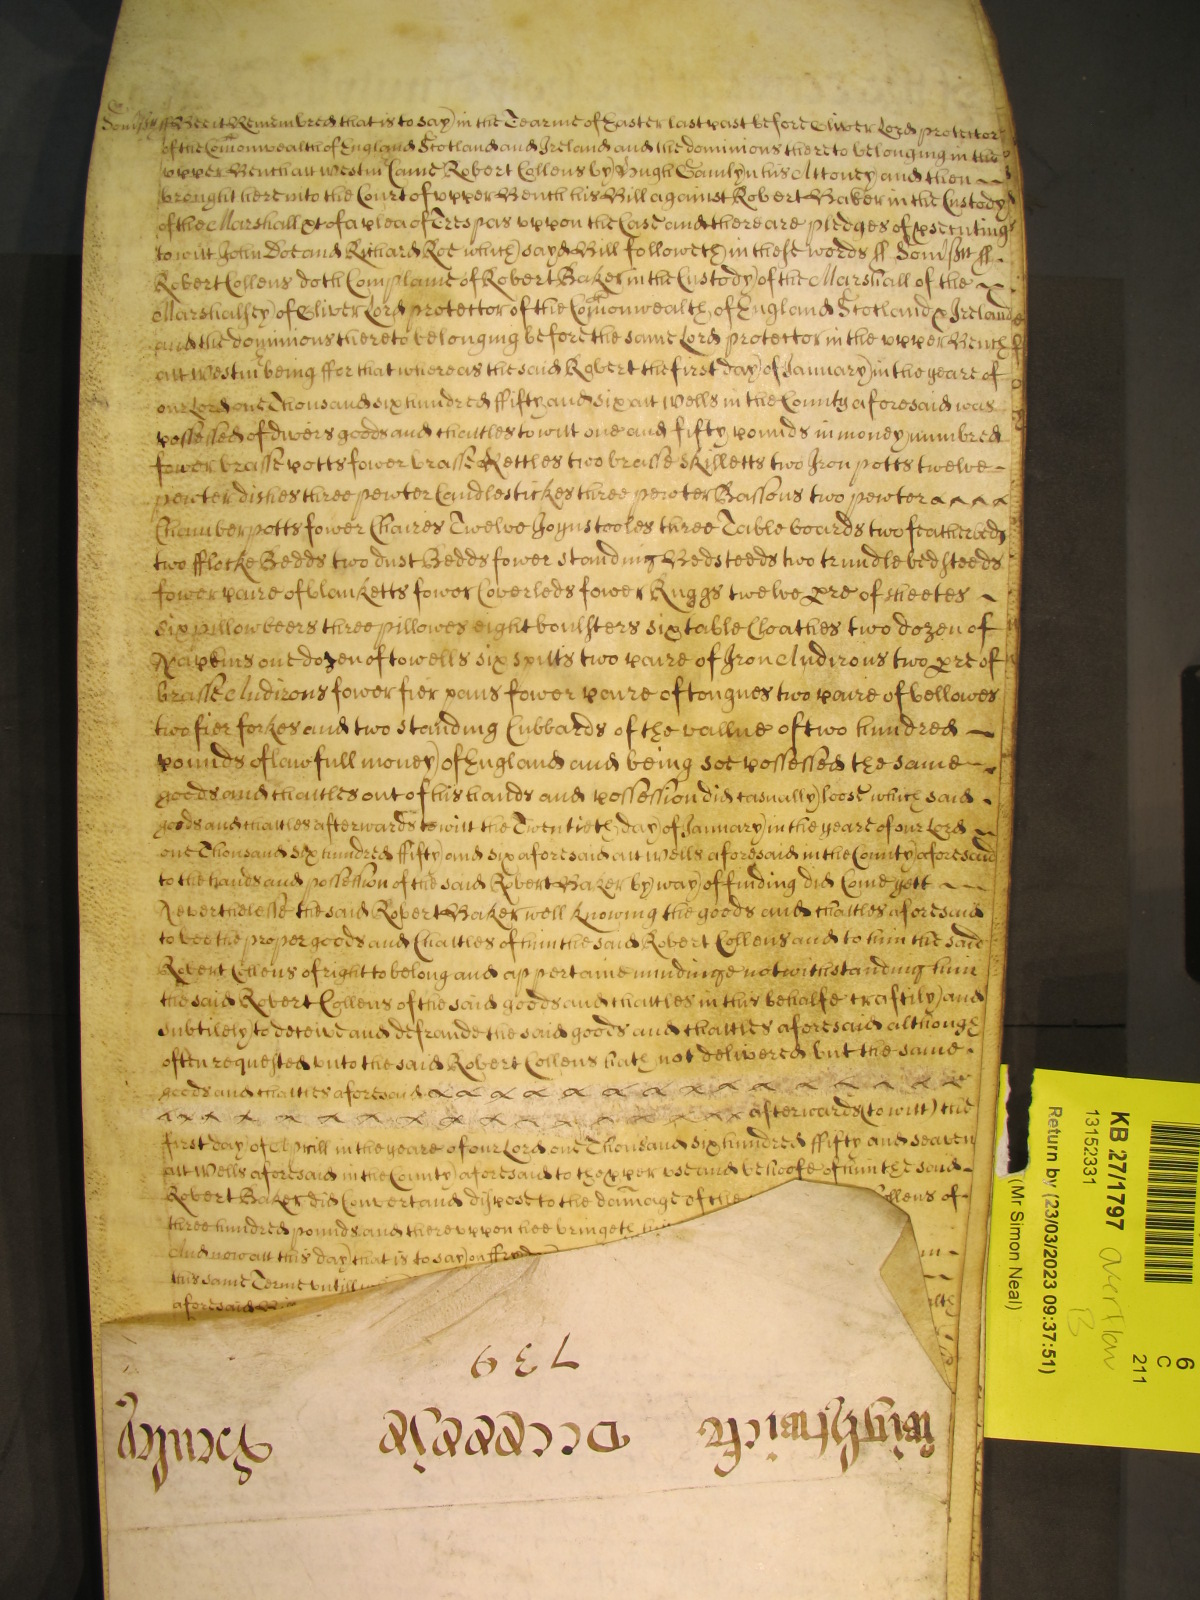 Som̃s̃tt ss Bee it Remembred that is to say) in the Tearme of Easter last past before Oliver Lord protector
of the Com̃onwealth of England Scotland and Ireland and the dominions thereto belonging in the
upper Bench att Westm̃ Came Robert Collens by) Hugh Gamlyn his Attoney and then
brought here into the Court of upper Bench his Bill against Robert Baker in the Custody
of the Marshall &c of a plea of Trespas uppon the Case and there are pledges of p̱secuting
to witt John Doe and Richard Roe which) sayd Bill followeth) in these words ss Som̃s̃tt ss.
Robert Collens doth Complaine of Robert Baker in the Custody) of the Marshall of the
Marshalsey) of Oliver Lord protector of the Com̃onwealth of England Scotland & Ireland
and the dominions thereto belonging before the same Lord protector in the upper Bench
att Westm̃ being ffor that whereas the said Robert the first day) of January) in the yeare of
our Lord one Thousand six hundred ffifty and six att Wells in the County aforesaid was
possessed of divers goods and chattles to witt one and fifty pounds in money numbred
fower brasse potts fower brasse Kettles two brasse Skilletts two Iron potts twelve
pewter dishes three pewter Candlestickes three pewter Bassons two pewter
Chamber potts fower Chaires Twelve Joynstooles three Table boards two featherbeds
two fflocke Bedds two dust Bedds fower standing Bedsteeds two trundle bedsteeds
fower paire of blanketts fower Coverleds fower Ruggs twelve p̱re of sheetes
six pillowbeers three pillowes eight boulsters six table Cloathes two dozen of
Napkins one dozen of towells six spitts two paire of Iron Andirons two p̱re of
brasse Andirons fower fier pans fower paire of tongues two paire of bellowes
two fier forkes and two standing Cubbards of the vallue of two hundred
pounds of lawfull money) of England and being soe possessed the same
goods and chattles out of his hands and possession did casually) loose which said
goods and chattles afterwards to witt the Twentieth day) of January) in the yeare of our Lord
one Thousand six hundred ffifty) and six aforesaid att Wells aforesaid in the County) aforesaid
to the hands and possession of the said Robert Baker by) way) of finding did Come yett
Neverthelesse the said Robert Baker well knowing the goods and chattles aforesaid
to bee the proper goods and Chattles of him the said Robert Collens and to him the said
Robert Collens of right to belong and appertaine mindinge notwithstanding him
the said Robert Collens of the said goods and chattles in this behalfe craftily) and
subtilely to deceive and defraude the said goods and chattles aforesaid although
often requested unto the said Robert Collens hath not delivered but the same
goods and chattles aforesaid
afterwards (to witt) the
first day of Aprill in the yeare of our Lord one Thousand six hundred ffifty and seaven
att Wells aforesaid in the County) aforesaid to the p̱per use and behoofe of him the said
Robert Baker did Convert and dispose to the dam̃age of the llens of
three hundred pounds and thereuppon hee bringeth
And now att this day) that is to say) on ffryd
this same Terme untill
aforesaid
739
Wightwicke Decxxxix Henley
KB 27/1797
13152331
Return by (23/03/2023 09:37:51)
(Mr Simon Neal)
6
C
211
overflow
B